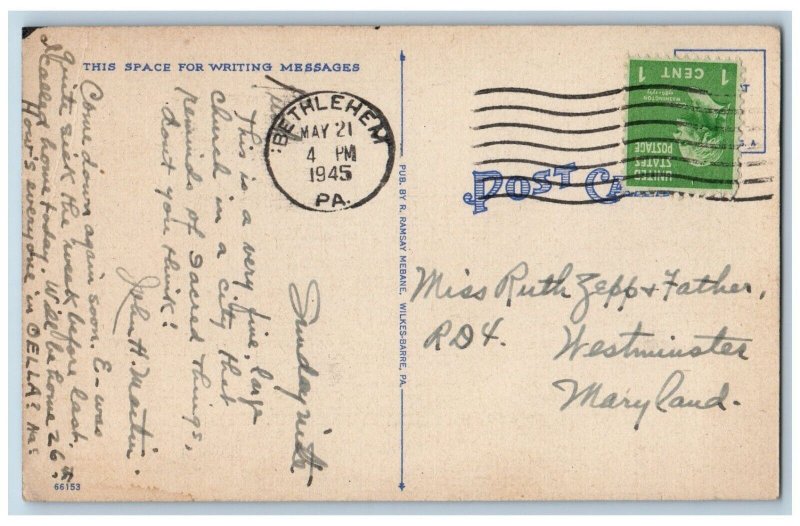 THIS SPACE FOR WRITING MESSAGES
Sunday nite.
This is a very fine, large
church in a city that
reminds of sacred things,
don't you think?
John H. Martin.
Come down again soon. E- was
quite sick the week before last.
I called home today. Will be home 26th,
How's everyone in CELLA? Ha!
66153
BETHLEHEM
MAY 21
4 PM
1945
PA.
PUB. BY R. RAMSAY MEBANE, WILKES-BARRE, PA.
POST CA
UNITED
STATES
POSTAGE
WASHINGTON
1789-1797
1 CENT 1
Miss Ruth Zepp & Father,
RD4.
Westminster
Maryland.